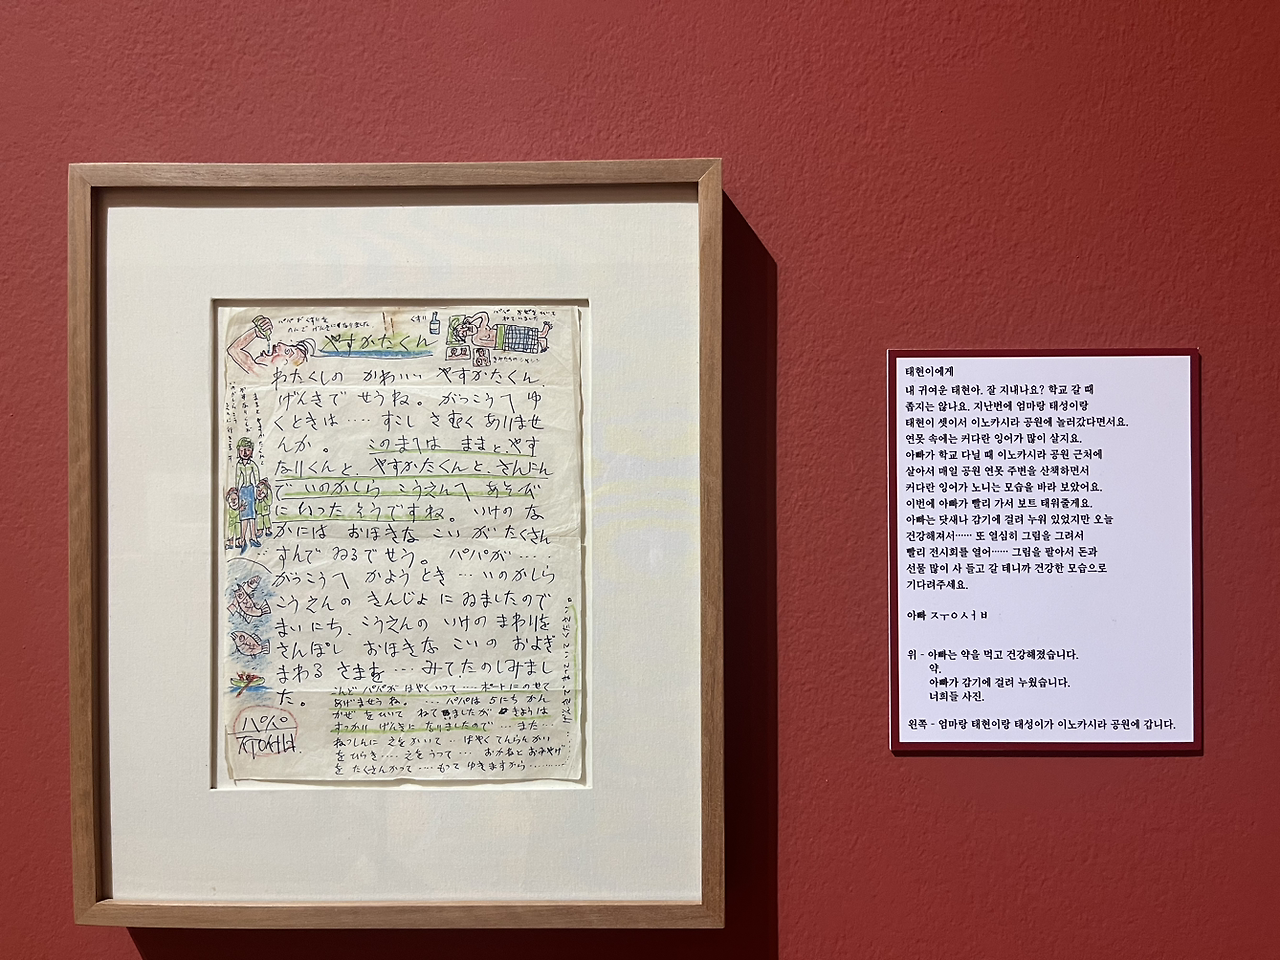 パパが くすりを
のんで げんきになりました
くすり
パパが かぜをひいて
ねていました
やすかたくん
わたくしの かわいい やすかたくん、
げんきで せうね。 がっこうへ ゆ
くときは …… すこし さむく ありませ
んか。 このまへは ままと、やす
なりくんと、やすかたくんと、さんにん
で いのかしら こうえんへ あそび
に いった そうですね。 いけの な
かには おほきな こい が たくさん
すんで ゐるでせう。 パパが … …
がっこうへ かよう とき … いのかしら
こうえんの きんじょ に ゐましたので
まいにち、 こうえんの いけの まわりを
さんぽし おほきな こいの およぎ
まわる さまを … みて、たのしみまし
た。
こんど パパが はやく いって …… ボートに のせて
あげませうね。 … パパは 5にち かん
かぜ をひいて ねて ましたが きょうは
すっかり げんきに なりましたので … また …
ねっしんに えを かいて … はやく てんらんかい
をひらき …… えを うって … おかねと おみやげ
を たくさんかって …… もって ゆきますから ………
パパ
ㅈㅜㅇㅅㅓㅂ
태현이에게
내 귀여운 태현아. 잘 지내나요? 학교 갈 때
춥지는 않나요. 지난번에 엄마랑 태성이랑
태현이 셋이서 이노카시라 공원에 놀러갔다면서요.
연못 속에는 커다란 잉어가 많이 살지요.
아빠가 학교 다닐 때 이노카시라 공원 근처에
살아서 매일 공원 연못 주변을 산책하면서
커다란 잉어가 노니는 모습을 바라 보았어요.
이번에 아빠가 빨리 가서 보트 태워줄게요.
아빠는 닷새나 감기에 걸려 누워 있었지만 오늘
건강해져서…… 또 열심히 그림을 그려서
빨리 전시회를 열어…… 그림을 팔아서 돈과
선물 많이 사 들고 갈 테니까 건강한 모습으로
기다려주세요.
아빠 ㅈㅜㅇㅅㅓㅂ
위 - 아빠는 약을 먹고 건강해졌습니다.
약.
아빠가 감기에 걸려 누웠습니다.
너희들 사진.
왼쪽 - 엄마랑 태현이랑 태성이가 이노카시라 공원에 갑니다.